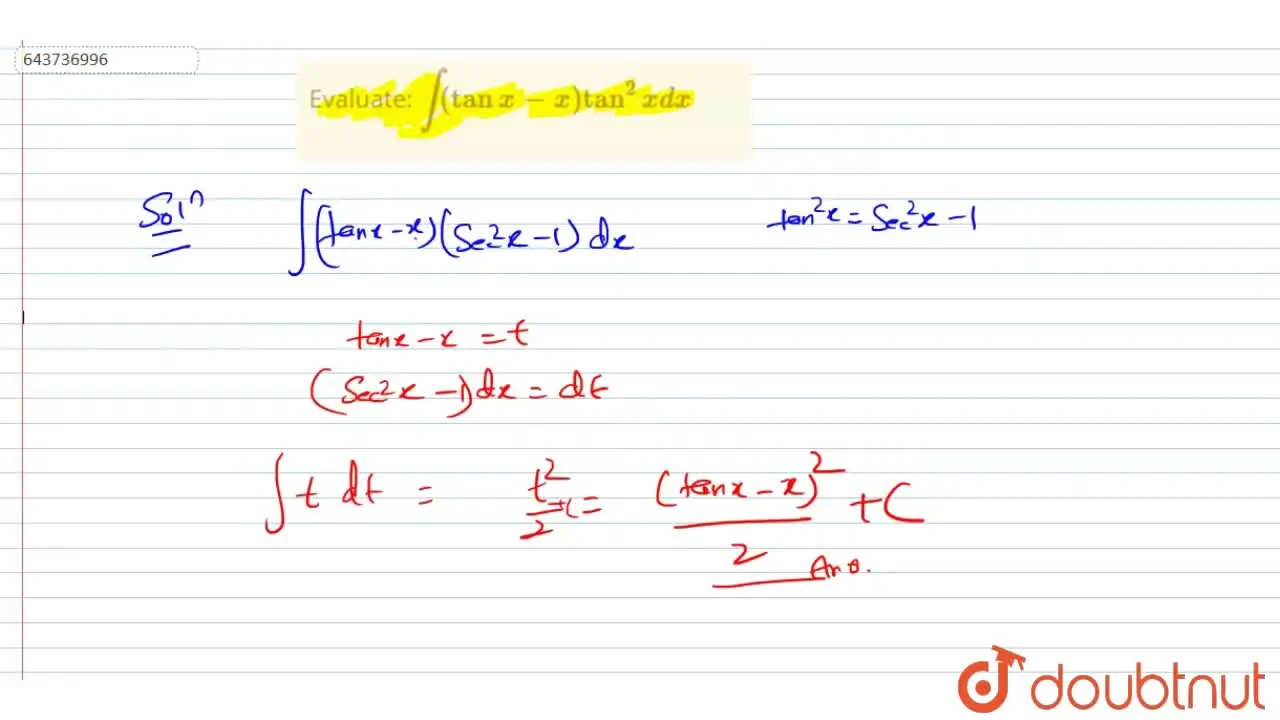 643736996
Evaluate: ∫(tan x − x)tan² xdx
Solⁿ ∫(tanx−x)(Sec²x−1) dx tan²x = Sec²x −1
tanx − x = t
(Sec²x −1)dx = dt
∫ t dt = t²/2 + C = (tanx − x)²/2 + C
Ans.
doubtnut